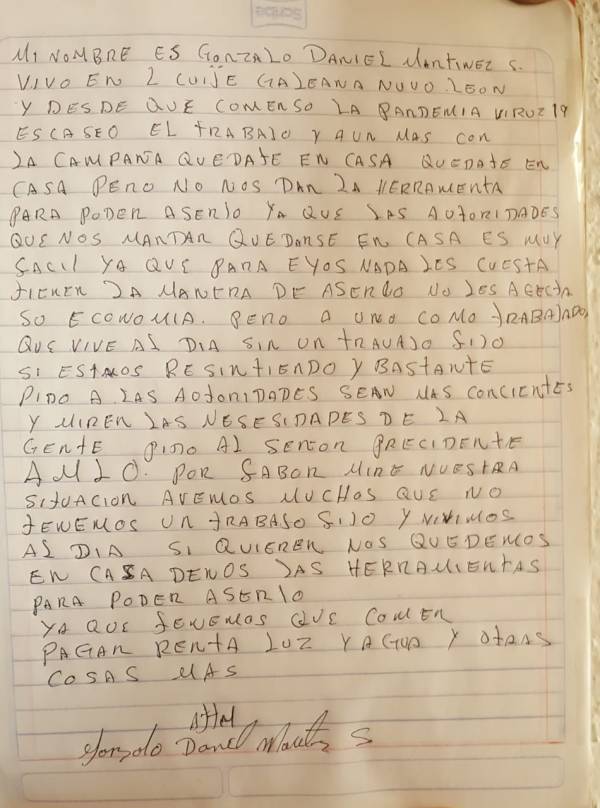 Scribe
MI NOMBRE ES GONZALO DANIEL MARTINEZ S.
VIVO EN 2 CUIJE GALEANA NUVO LEON
Y DESDE QUE COMENSO LA PANDEMIA VIRUZ 19
ESCASEO EL TRABAJO Y AUN MAS CON
LA CAMPAÑA QUEDATE EN CASA QUEDATE EN
CASA PERO NO NOS DAN LA HERRAMENTA
PARA PODER ASERLO YA QUE LAS AUTORIDADES
QUE NOS MANDAN QUEDARSE EN CASA ES MUY
FACIL YA QUE PARA EYOS NADA LES CUESTA
TIENEN LA MANERA DE ASERLO NO LES AFECTA
SO ECONOMIA. PERO A UNO COMO TRABAJADOR
QUE VIVE AL DIA SIN UN TRAVAJO FIJO
SI ESTAMOS RESINTIENDO Y BASTANTE
PIDO A LAS AUTORIDADES SEAN MAS CONCIENTES
Y MIREN LAS NESESIDADES DE LA
GENTE PIDO AL SEÑOR PRECIDENTE
AMLO. POR FABOR MIRE NUESTRA
SITUACION AVEMOS MUCHOS QUE NO
TENEMOS UN TRABAJO FIJO Y VIVIMOS
AL DIA SI QUIEREN NOS QUEDEMOS
EN CASA DENOS LAS HERRAMIENTAS
PARA PODER ASERLO
YA QUE TENEMOS QUE COMER
PAGAR RENTA LUZ Y AGUA Y OTRAS
COSAS MAS
Gonzalo Daniel Martinez S